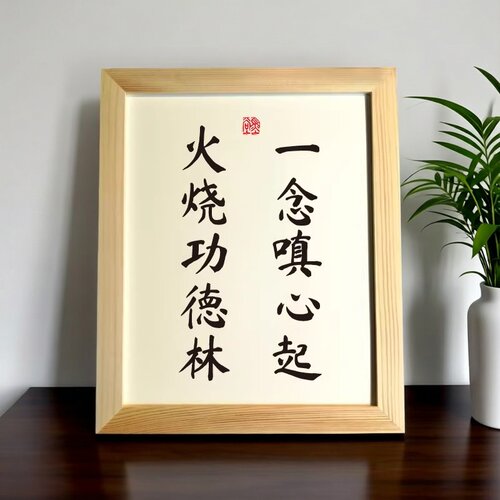 一念嗔心起
火烧功德林